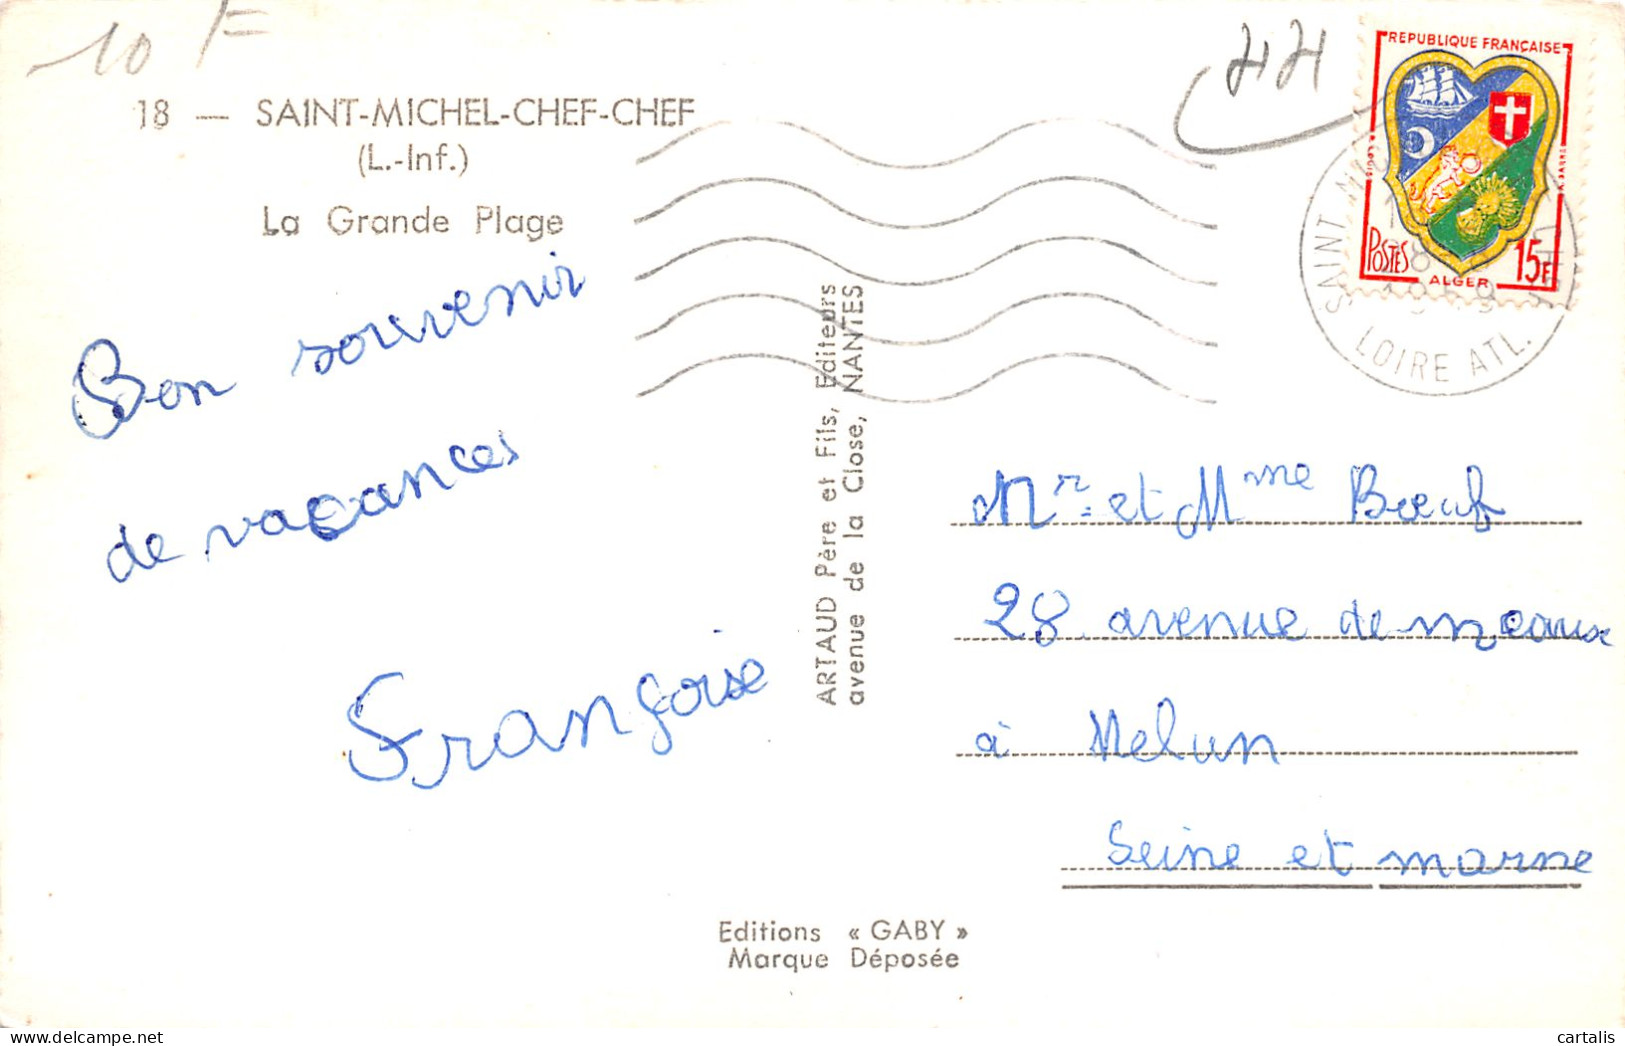 10 F
44
18 — SAINT-MICHEL-CHEF-CHEF
(L.-Inf.)
La Grande Plage
Bon souvenir
de vacances
Françoise
ARTAUD Père et Fils, Editeurs
avenue de la Close, NANTES
REPUBLIQUE FRANÇAISE
POSTES
ALGER
15F
SAINT
1959
LOIRE ATL.
Mr. et Mme Bœuf
28 avenue de meaux
à Melun
Seine et marne
Editions « GABY »
Marque Déposée
delcampe.net
cartalis